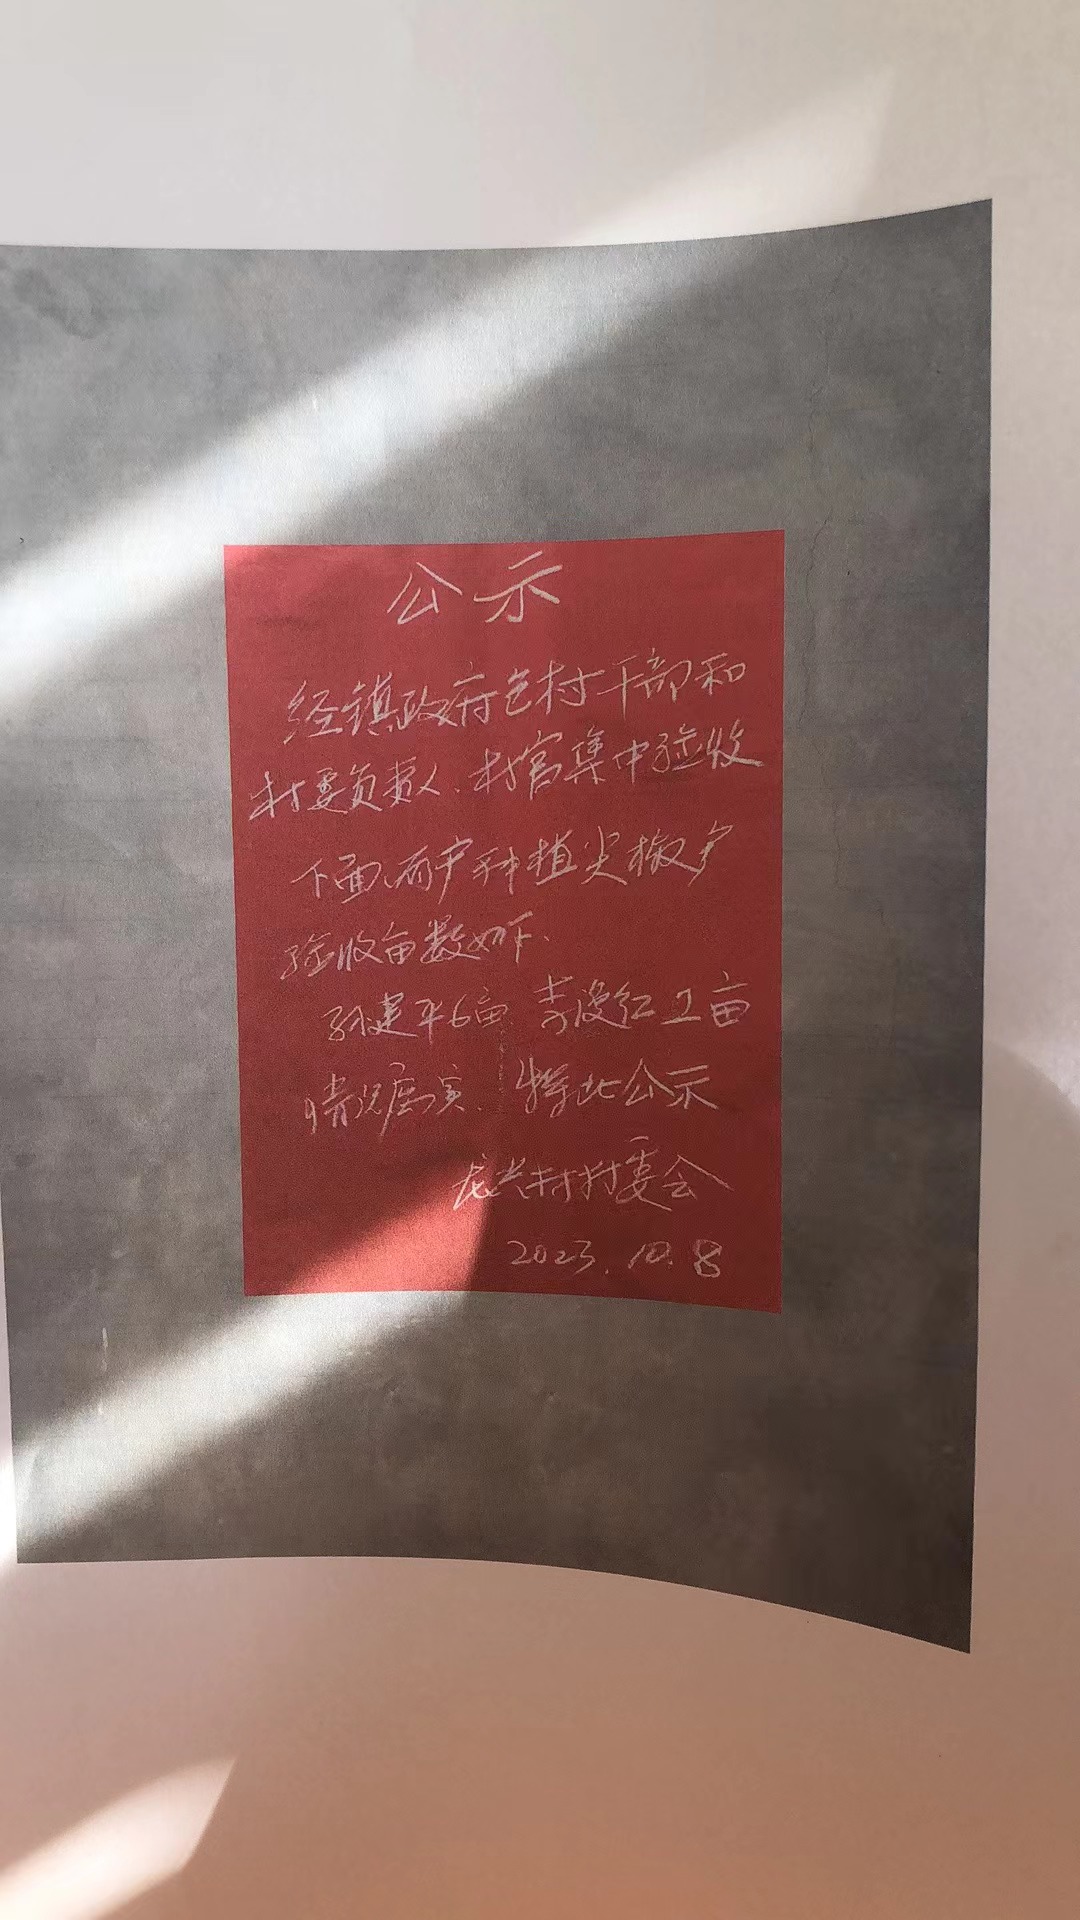 公示
经镇政府包村干部和
村委负责人、村官集中验收
下面两户种植尖椒户
验收亩数如下、
孙建平6亩 李俊红2亩
情况属实、特此公示
龙兴村村委会
2023.10.8